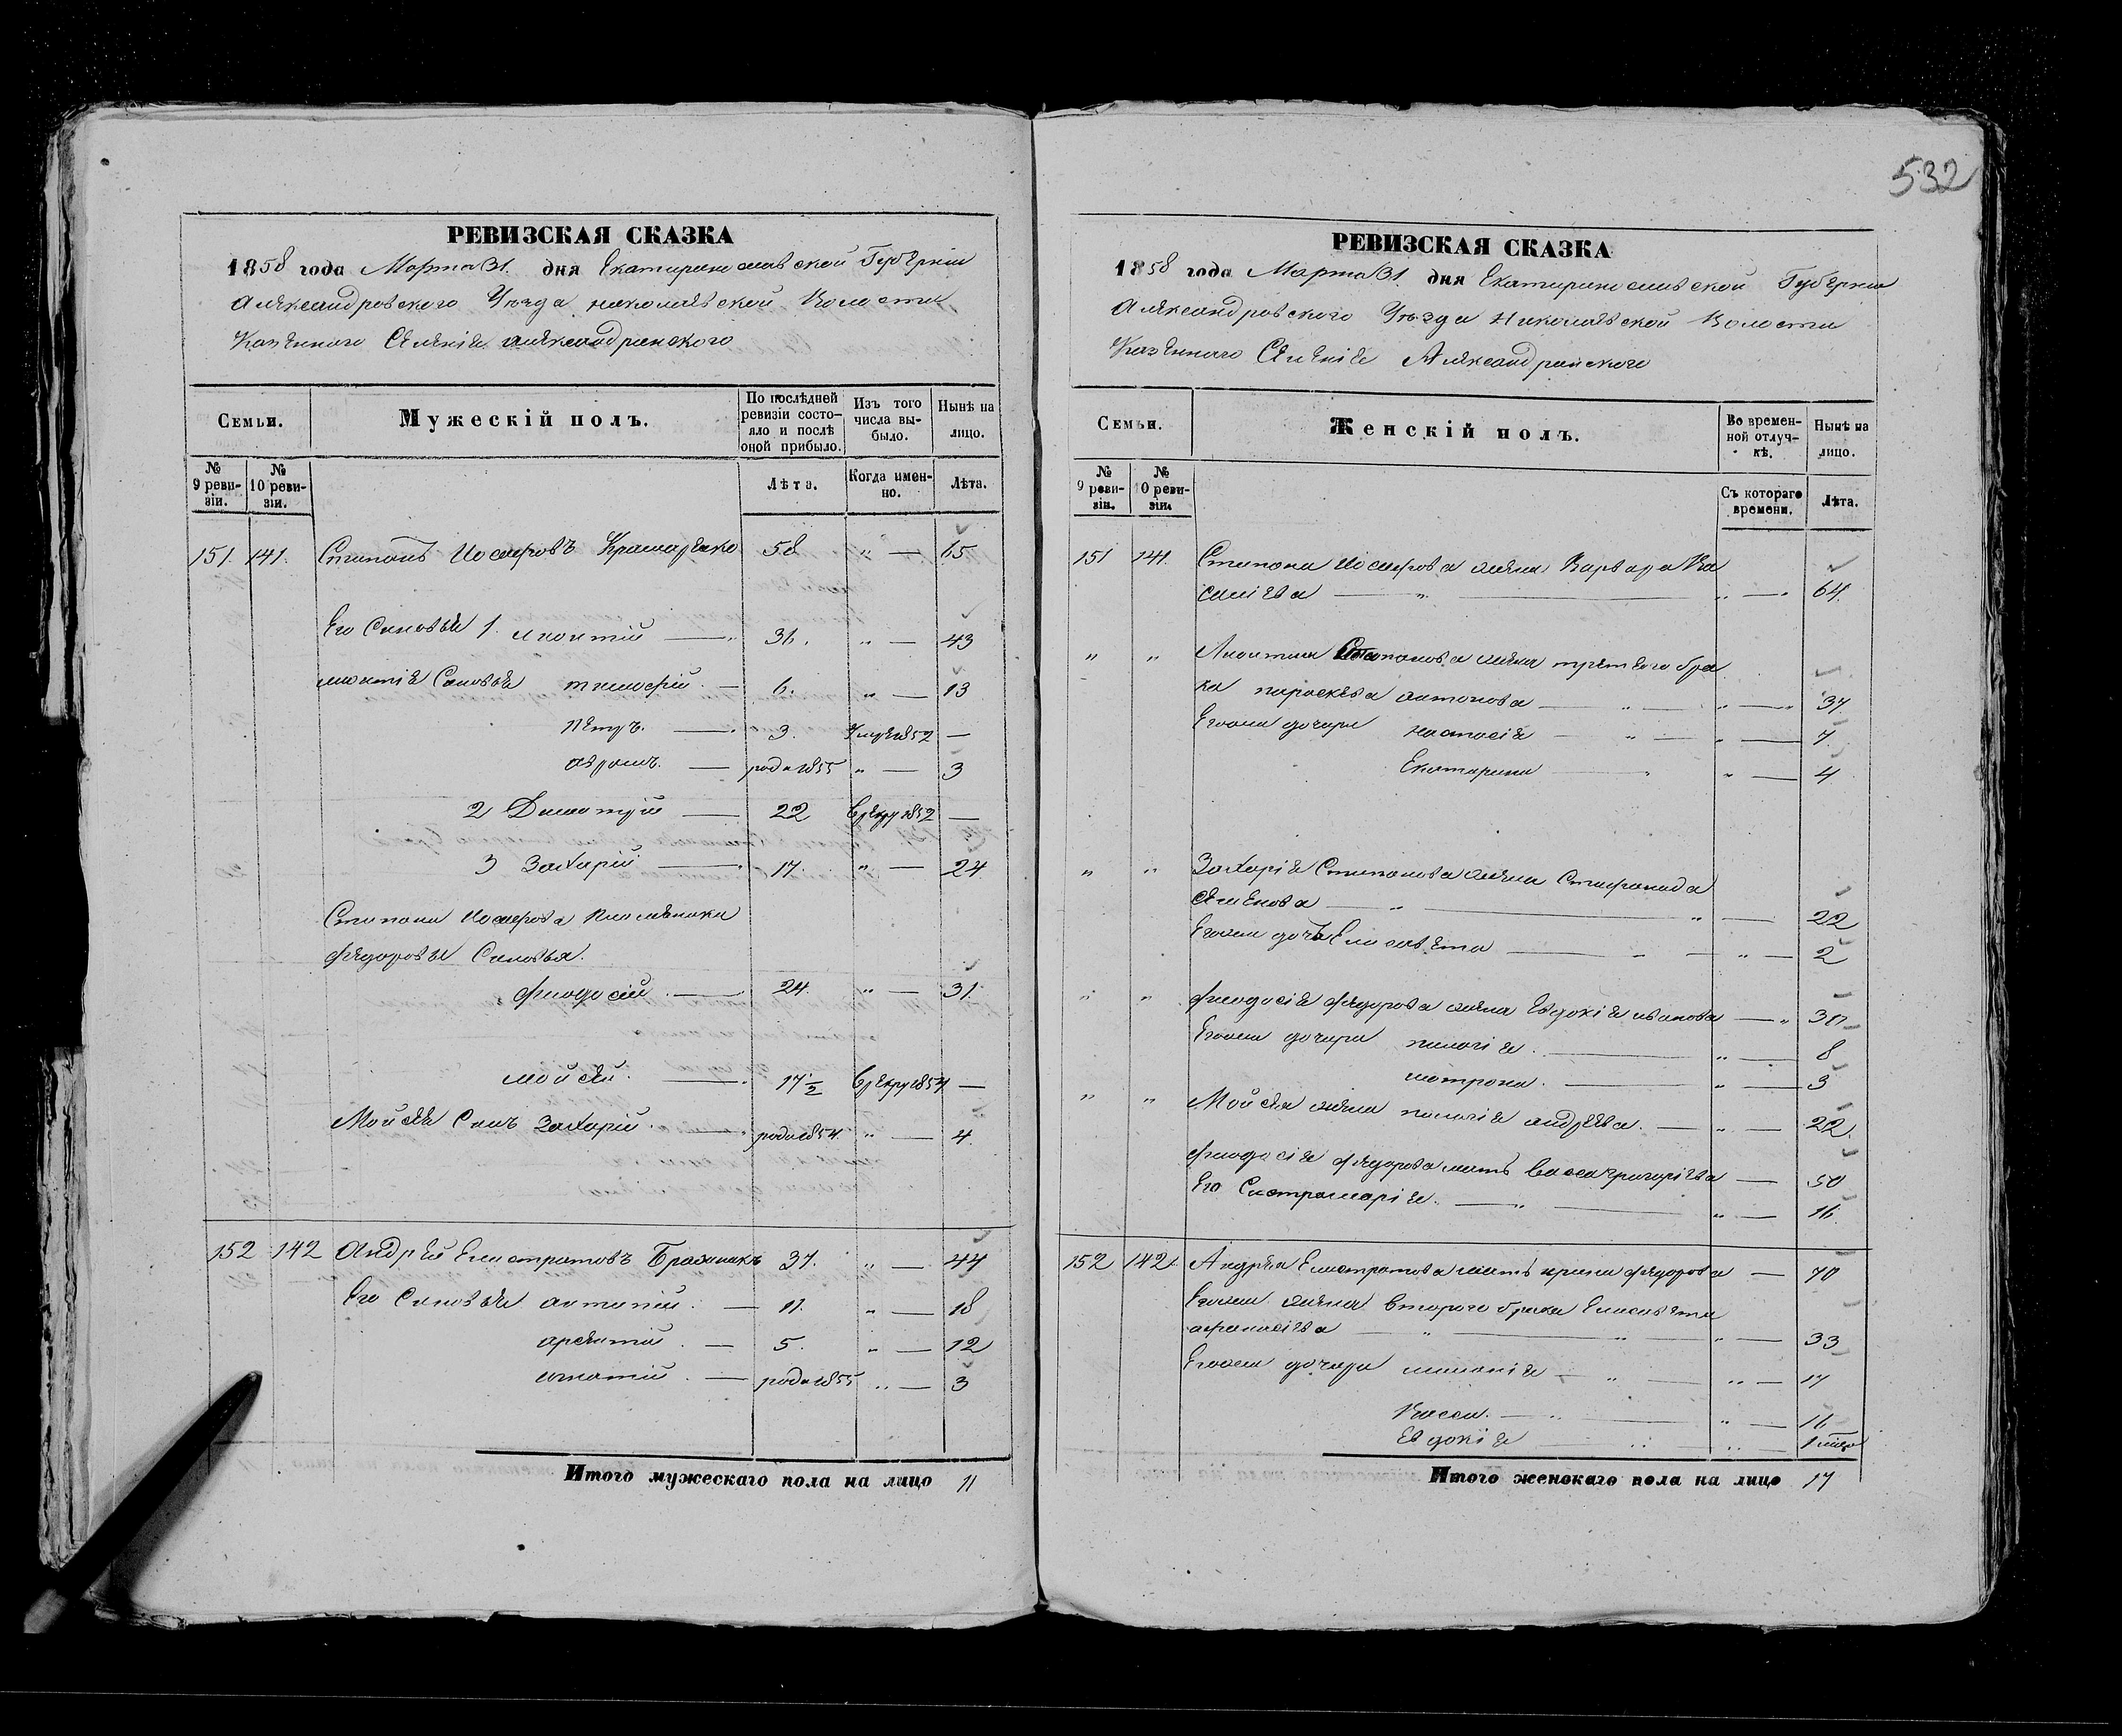 532
РЕВИЗСКАЯ СКАЗКА
1858 года Марта 31. дня Екатеринославской Губернии
Александровского Уезда николаевской Волости
Казенного Селения александринского
Семьи. Мужескій полъ. По послѣдней ревизіи состояло и послѣ оной прибыло. Изъ того числа выбыло. Нынѣ на лицо.
№ 9 ревизіи. № 10 ревизіи. Лѣта. Когда именно. Лѣта.
151. 141. Степанъ Иосифовъ 58 " — 65
Его Сыновья 1. леонтий — 36. " — 43
леонтия Сыновья тимофей. — 6. " — 13
петръ. — 3. Умре 1852 —
аврамъ. — род. 1855 " — 3
2 Дмитрий — 22 1852 —
3 Захарий — 17. " — 24
Степана Иосифова племянники
федоровы Сыновья.
феодосий. — 24. " — 31.
мойсей. — 17½ 1854 —
Мойсея Сынъ Захарий. — род. 1854. " — 4.
152 142 Андрей Елистратовъ 37. " — 44
Его Сыновья антипий. — 11. " — 18
арсентий. — 5. " — 12
игнатий. — род. 1855 " — 3
Итого мужескаго пола на лицо 11
РЕВИЗСКАЯ СКАЗКА
1858 года Марта 31. дня Екатеринославской Губернии
Александровского Уезда Николаевской Волости
Казенного Селения Александринского
Семьи. Женскій полъ. Во временной отлучкѣ. Нынѣ на лицо.
№ 9 ревизіи. № 10 ревизіи. Съ котораго времени. Лѣта.
151 141. Степана Иосифова жена Варвара Ва
силиева — " — " — 64.
" " Леонтия Степанова жена третего бра
ка параскева антонова — " — " — 37.
Егоже дочери настасия — " — " — 7.
Екатерина — " — 4
" " Захария Степанова жена Стефанида
Семенова — " — " — 22
Егоже дочь Елисавета — " — " — 2
" " феодосия федорова жена Евдокия иванова — " 30
Егоже дочери пелагия. — " — 8
матрона. — " — 3
" " Мойсея жена пелагия андреева. — " — 22.
феодосия федорова мать Васса григориева — 50
Его Сестра мария. — " — " — 16.
152 142. Андрея Елистратова мать ирина федорова — 70
Егоже жена второго брака Елисавета
афанасиева — " — " — 33
Егоже дочери мелания — " — " — 17
Васса. — " — " — 16
Евдокия — " —
Итого женскаго пола на лицо 17